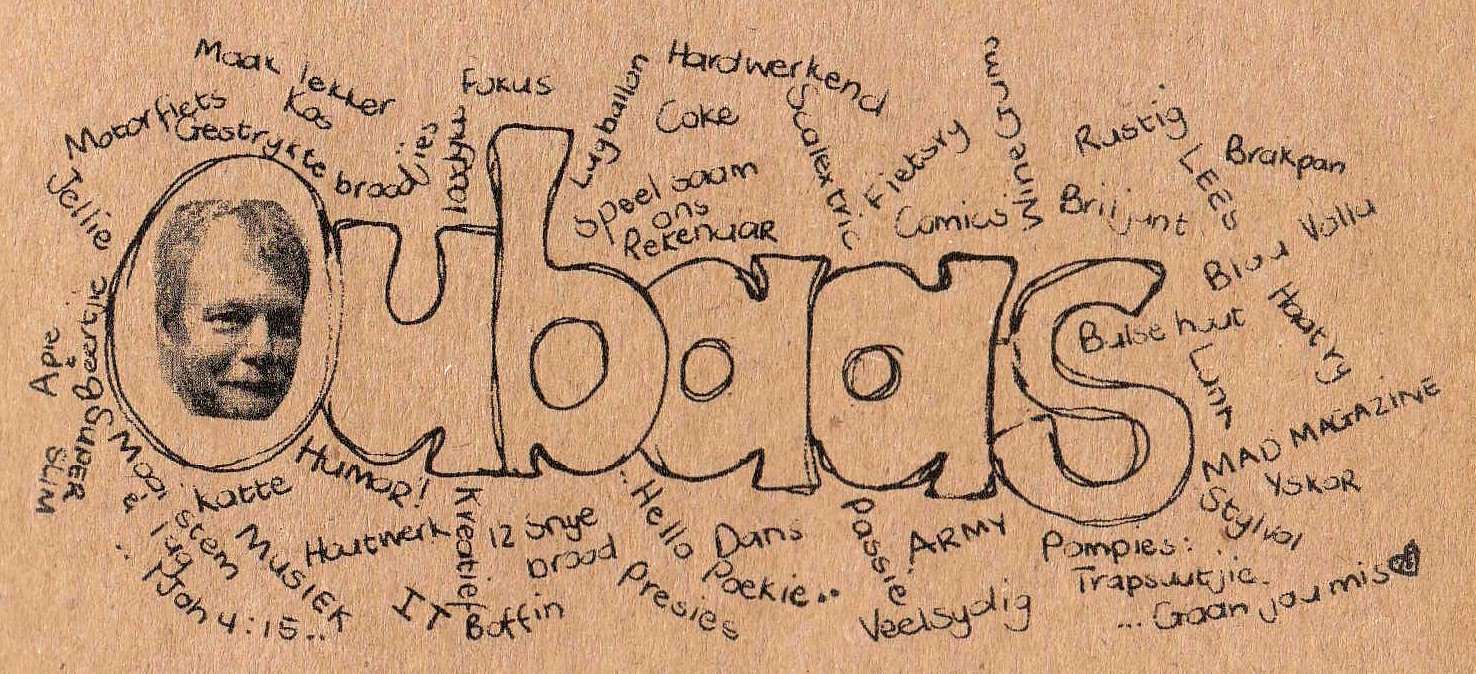 Maak lekker
Kos
Motorfiets
Gestrykte brood
Jellie
Fokus
Lugballon
Hardwerkend
Coke
Speel saam
ons
Rekenaar
Scalextric
Fietsry
Comics
Rustig
LEES
Brakpan
Briljant
Volla
Blou
Bulse hut
MAD MAGAZINE
YSKOR
Stylvol
Oubaas
Apie
&
Beertjie
SUPER
SLIM
Mooi
stem
Katte
Humor!
Musiek
Houtwerk
Kreatief
IT
Boffin
12 snye
brood
Presies
..Hello
Poekie..
Dans
Passie
ARMY
Veelsydig
Pompies:
Trapsuutjie.
... Gaan jou mis
..1 Joh 4:15..